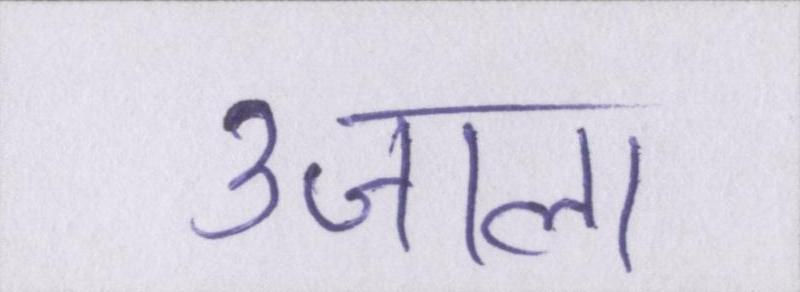 उजाला